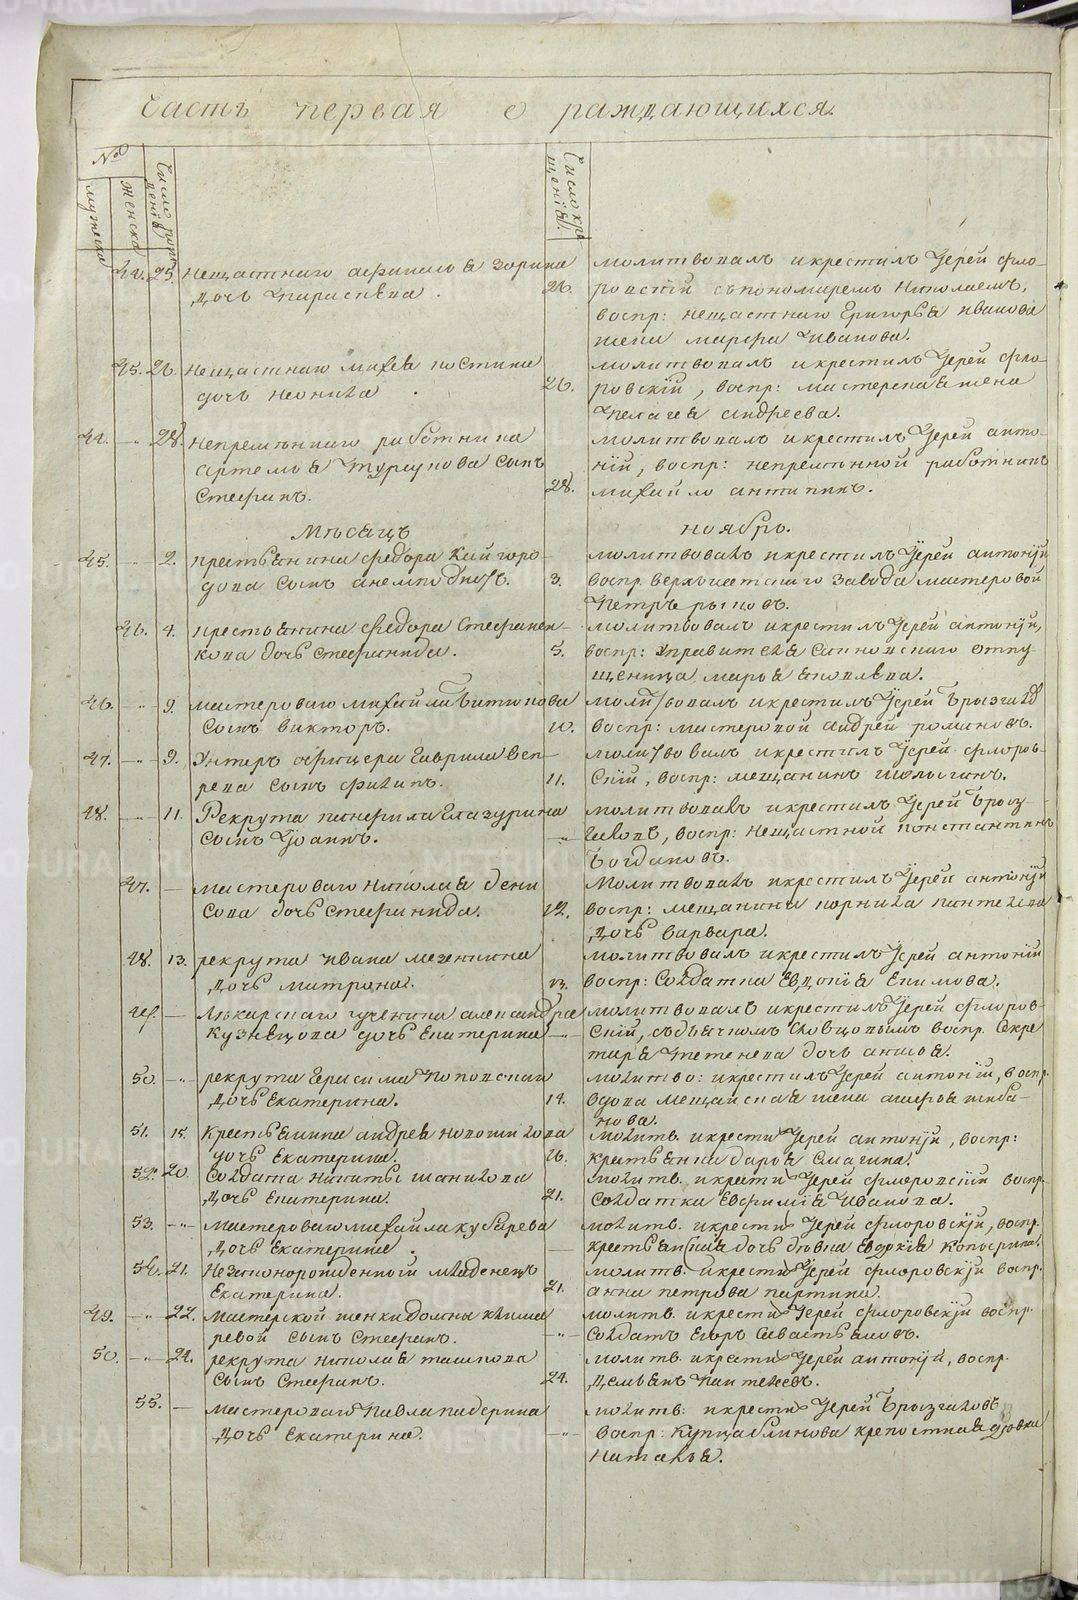 Часть первая о раждающихся.
№
мужеска
женска
Число рож
денiя
Число кре
щенiя
44. 25. нещастнаго афанасья зорина
дочь параскева.
26.
молитвовалъ и крестилъ Iерей фло-
ровскiй съ пономаремъ Николаемъ,
воспр: нещастнаго Григорья иванова
жена марфа Иванова.
45. 26. нещастнаго михея костина
дочь неонила.
26.
молитвовалъ и крестилъ Iерей фло-
ровскiй, воспр: мастерская жена
Пелагея андреева.
44. -"- 28. непременнаго работника
артемья турунова сынъ
Стефанъ.
28.
молитвовалъ и крестилъ Iерей анто-
нiй, воспр: непременной работникъ
михайло антипинъ.
Месяцъ ноябрь.
45. 2. крестьянина федора Кайгоро-
дова сынъ анемподистъ.
3.
молитвовалъ и крестилъ Iерей антонiй
воспр. верхъисетскаго завода мастеровой
Петръ рыковъ.
46. 4. крестьянина федора Стефанен-
кова дочь стефанида.
5.
молитвовалъ и крестилъ Iерей антонiй,
воспр: управителя отпу-
щеница марья яковлева.
46. -"- 9. мастероваго михайла
сынъ викторъ.
10.
молитвовалъ и крестилъ Iерей Брызгалов
воспр: мастеровой андрей романовъ.
47. -"- 9. Унтеръ офицера гаврила веп-
рева сынъ филипъ.
11.
молитвовалъ и крестилъ Iерей флоров-
скiй, воспр: мещанинъ
48. -"- 11. Рекрута панфила Глазурина
сынъ Iоаннъ.
-"-
молитвовалъ и крестилъ Iерей Брыз-
галовъ, воспр: нещастной константинъ
Богдановъ.
47. — мастероваго николая дени
сова дочь стефанида.
12.
молитвовалъ и крестилъ Iерей антонiй
воспр: мещанина корнила пантелеева
дочь варвара.
48. 13. рекрута ивана мезенина
дочь матрона.
13.
молитвовалъ и крестилъ Iерей антонiй
воспр: солдатка Евдокiя Екимова.
49. — лекарскаго ученика александра
кузнецова дочь екатерина
-"-
молитвовалъ и крестилъ Iерей флоров-
скiй, съ дьячкомъ воспр. секре
таря дочь анисья.
50. -"- рекрута герасима
дочь екатерина.
14.
молитво: и крестилъ Iерей антонiй, воспр.
вдова мещанская жена
нова.
51. 15. крестьянина андрея новожилова
дочь екатерина.
16.
молитв. и крести Iерей антонiй, воспр:
крестьянка дарья смагина.
52. 20. солдата никиты шанилова
дочь екатерина.
21.
молитв. и крести Iерей флоровскiй воспр.
солдатка евфимiя иванова.
53. -"- мастероваго михайла кубарева
дочь екатерина.
—
молитв. и крести Iерей флоровскiй, воспр.
крестьянская дочь девка
54. 21. незаконорожденный младенецъ
екатерина.
21.
молитв. и крести Iерей флоровскiй воспр.
анна петрова
49. -"- 22. мастерской женки домны
ревой сынъ Стефанъ.
-"-
молитв. и крести Iерей флоровскiй воспр.
солдатъ егоръ севастьяновъ.
50. -"- 24. рекрута николая ташкова
сынъ Стефанъ.
24.
молитв. и крести Iерей антонiй, воспр.
Демьянъ пантелеевъ.
55. — мастероваго Павла падерина
дочь екатерина.
-"-
молитв: и крести Iерей Брызгаловъ
воспр: купца блинова крепостная девка
наталья.
METRIKI.GASO-URAL.RU